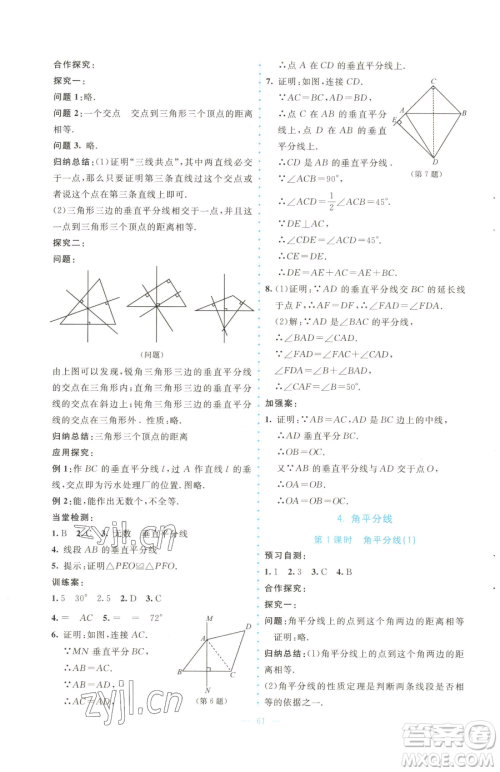 合作探究：
探究一：
问题 1：略.
问题 2：一个交点　交点到三角形三个顶点的距离
相等.
问题 3. 略.
归纳总结：(1)证明“三线共点”，其中两直线必交
于一点，那么只要证明第三条直线过这个交点或
者这个点在第三条直线上即可.
(2)三角形三边的垂直平分线相交于一点，并且这
一点到三个顶点的距离相等.
探究二：
问题：
(问题)
由上图可以发现，锐角三角形三边的垂直平分线
的交点在三角形内；直角三角形三边的垂直平分
线的交点在斜边上；钝角三角形三边的垂直平分
线的交点在三角形外.
归纳总结：三角形三个顶点的距离
应用探究：
例 1：作 BC 的垂直平分线 l，可得 l 与河岸的交
点，这个交点即为污水处理厂的位置.
例 2：能作出无数个，不都全等.
当堂检测：
1. B　2. C　3. 无数　垂直平分线
4. 线段 AB 的垂直平分线
5. 提示：证明△PEO≌△PFO.
训练案：
1. 5　30°　2. 5　3. D
4. =　AC　5. =　=　72°
6. 证明：如图，连接 AB.
∵MN 垂直平分 BC，
∴AB=AC.
∵AD=AC，
∴AB=AD.
∴点 A 在 BD 的垂直平分线上.
∵AD=AC，
M
A
D
B
C
N
(第 6 题)
∴点 A 在 CD 的垂直平分线上.
7. 证明：如图，连接 CD.
∵AC=BC，AD=BD，
∴点 C 在 AB 的垂直平分线上，
点 D 在 AB 的垂直平分线上.
∴CD 垂直平分 AB.
∵∠ACB=90°，
∴∠ACD=1/2∠ACB=45°.
∵DE⊥AC，
∴∠CDE=∠ACD=45°.
∴CE=DE.
C
A
B
E
D
(第 7 题)
8. (1)证明：∵AD 的垂直平分线交 BC 的延长线
于点 F，∴AF=DF，∴∠FAD=∠FDA.
(2)解：∵∠FAD=∠FDA，
∴∠FAC+∠CAD=∠B+∠DAB.
∵AD 是∠BAC 的平分线，
∴∠CAD=∠DAB.
∴∠FAC=∠B=50°.
加强案：
1. 证明：∵AB=AC，AD 是 BC 边上的中线，
∴AD⊥BC.
∴AD 是 BC 的垂直平分线.
∴OB=OC.
又∵OE 是 AC 的垂直平分线，
∴OA=OC.
∴OA=OB.
4. 角平分线
第 1 课时　角平分线(1)
预习自测：
1. 1　2. 3　3. C　4. B
合作探究：
探究一：
问题：角平分线上的点到这个角的两边的距离
相等.
归纳总结：(1)角平分线上的点到这个角两边的距
离相等.
(2)角平分线的性质定理是判定两条线段相等的
依据之一.
61
zyjl.cn
zyjl.cn
答案圈
MXQE.COM